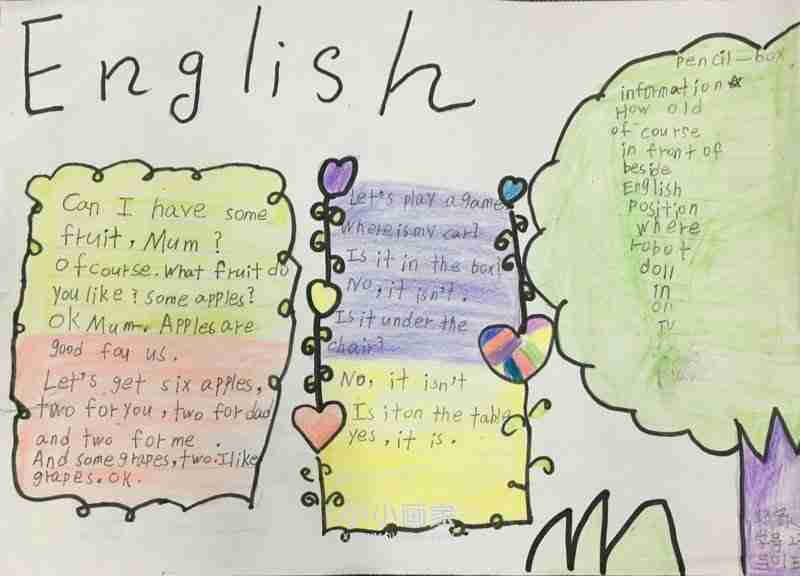 English
Can I have some
fruit, Mum?
Of course. What fruit do
you like? some apples?
OK Mum. Apples are
good fou us.
Let's get six apples,
two for you, two for dad
and two for me.
And some grapes, two. I like
grapes. OK.
Let's play a game
Where is my car?
Is it in the box?
No, it isn't.
Is it under the
chair?
No, it isn't
Is it on the table
yes, it is.
pencil-box
information
How old
of course
in front of
beside
English
position
where
robot
doll
in
on
TV
小画家